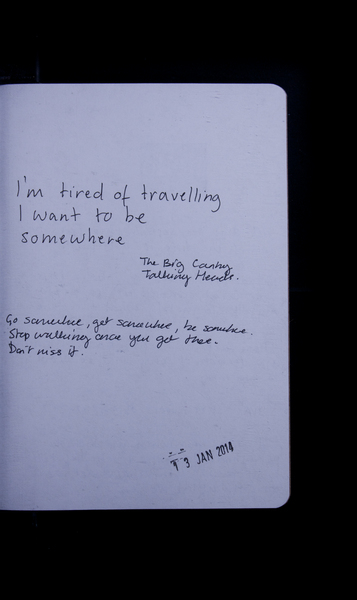 I'm tired of travelling
I want to be
somewhere
The Big Country
Talking Heads.
Go somewhere, get somewhere, be somewhere.
Stop walking once you get there.
Don't miss it.
13 JAN 2014